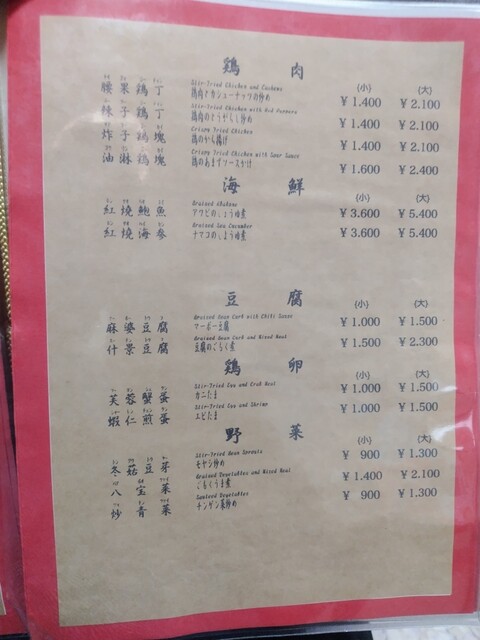 鶏肉
(小) (大)
腰果鶏丁 Stir-Fried Chicken and Cashews
鶏肉とカシューナッツの炒め ￥1.400 ￥2.100
辣子鶏丁 Stir-Fried Chicken with Red Peppers
鶏肉のとうがらし炒め ￥1.400 ￥2.100
炸子鶏塊 Crispy Fried Chicken
鶏のから揚げ ￥1.400 ￥2.100
油淋鶏塊 Crispy Fried Chicken with Sour Sauce
鶏のあまずソースかけ ￥1.600 ￥2.400
海鮮
(小) (大)
紅燒鮑魚 Braised Abalone
アワビのしょうゆ煮 ￥3.600 ￥5.400
紅燒海参 Braised Sea Cucumber
ナマコのしょうゆ煮 ￥3.600 ￥5.400
豆腐
(小) (大)
麻婆豆腐 Braised Bean Curk with Chili Sauce
マーボー豆腐 ￥1.000 ￥1.500
什景豆腐 Braised Bean Curk and Mixed Meat
豆腐のごもく煮 ￥1.500 ￥2.300
鶏卵
(小) (大)
芙蓉蟹蛋 Stir-Fried Egg and Crab Meat
カニたま ￥1.000 ￥1.500
蝦仁煎蛋 Stir-Fried Egg and Shrimp
エビたま ￥1.000 ￥1.500
野菜
(小) (大)
冬菇豆芽 Stir-Fried Bean Sprouts
モヤシ炒め ￥900 ￥1.300
八宝菜 Braised Vegetables and Mixed Meat
ごもくうま煮 ￥1.400 ￥2.100
炒青菜 Sauteed Vegetables
チンゲン菜炒め ￥900 ￥1.300